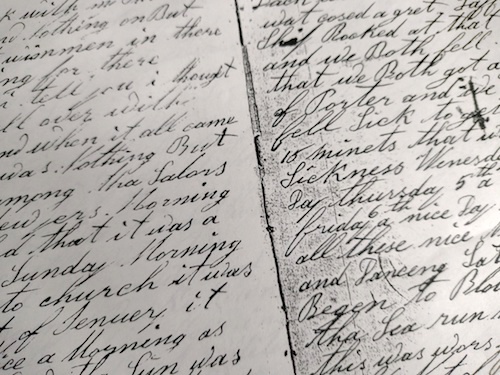 k with
nd Nothing on But
women in there
ng for there
i tell you i thought
ll over with
nd when it all came
was Nothing But
mong tha Salors
ewyers Morning
d that it was a
Sunday Morning
to church it was
of Jenuery it
ice a Morning as
d the Sun was
wat gosed a gret
Ship Rooked at that
and we Both fell
that we Both got a
of Porter and we
fell Sick to ge
15 minets that w
Sickness Wenersd
Day thursday 5th a
friday 6th a nice Day
all these nice
and Danceng Sat
Begen to Blo
tha Sea run
this was wors